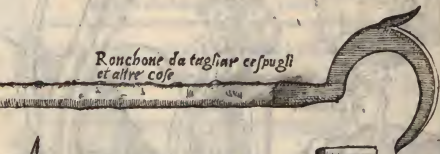 Ronchone da tagliar cespugli
et altre cose